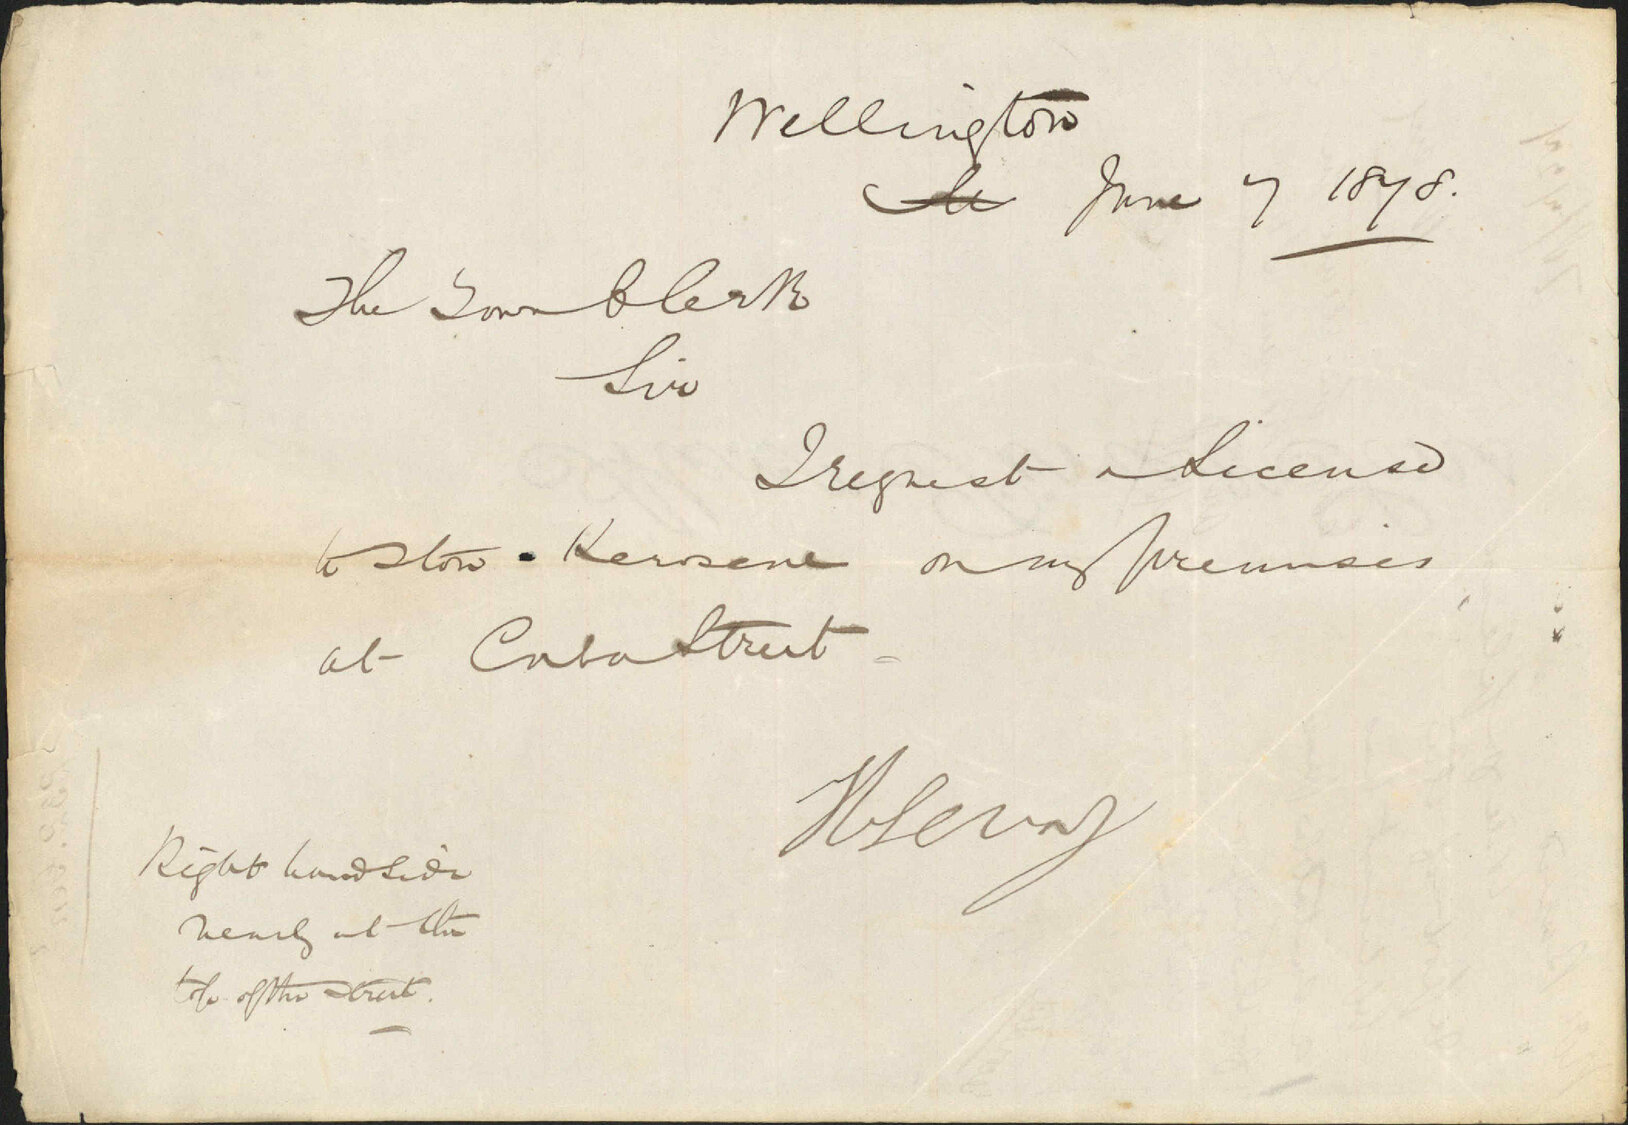 Wellington
June 7 1878.
The Town Clerk
Sir
I request a License
to store Kerosene on my premises
at Cuba Street
H Levy
Right hand side
nearly at the
top of the street.